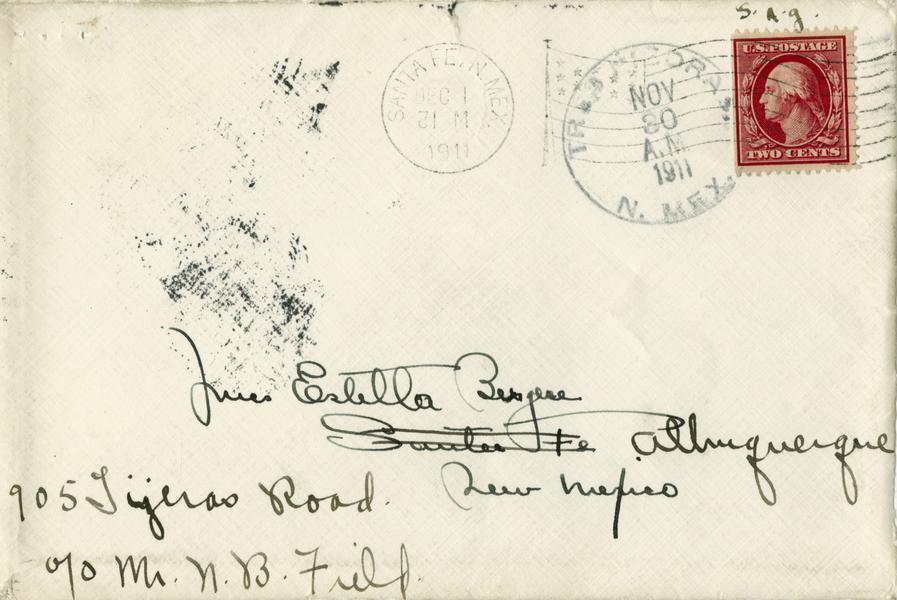 S. A. G.
U.S. POSTAGE
TWO CENTS
SANTA FE, N. MEX.
DEC 1
1911
TRES PIEDRAS
NOV
30
A.M.
1911
N. MEX.
Miss Estella Bergere
Santa Fe Albuquerque
New Mexico
905 Tijeras Road.
c/o Mr. N. B. Field.